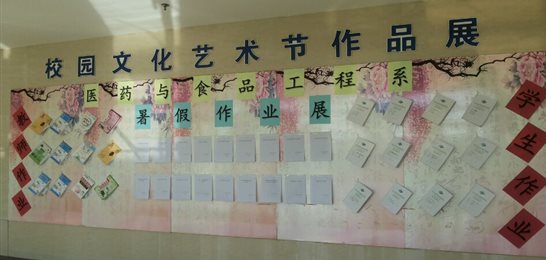 校园文化艺术节作品展
医药与食品工程系
暑假作业展
教师作业
学生作业